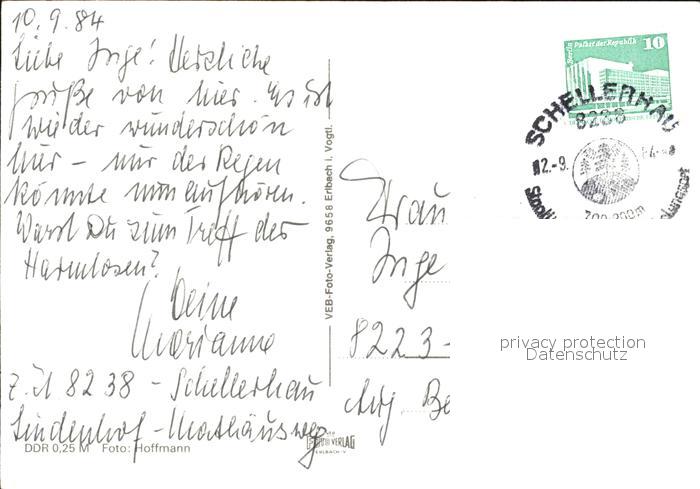 10.9.84
Liebe Inge! Herzliche
Grüße von hier. Es ist
wieder wunderschön
hier – nur der Regen
könnte nun aufhören.
Warst Du zum Treff der
Harmlosen?
Deine
Marianne
z.Zt 8238 – Schellerhau
Lindenhof – Mathäusweg
DDR 0,25 M Foto: Hoffmann
VEB-Foto-Verlag, 9658 Erlbach i. Vogtl.
FOTO VERLAG
ERLBACH-V
Berlin Palast der Republik 10
SCHELLERHAU
8238
700-800m
Frau
Inge
8223-
privacy protection
Datenschutz